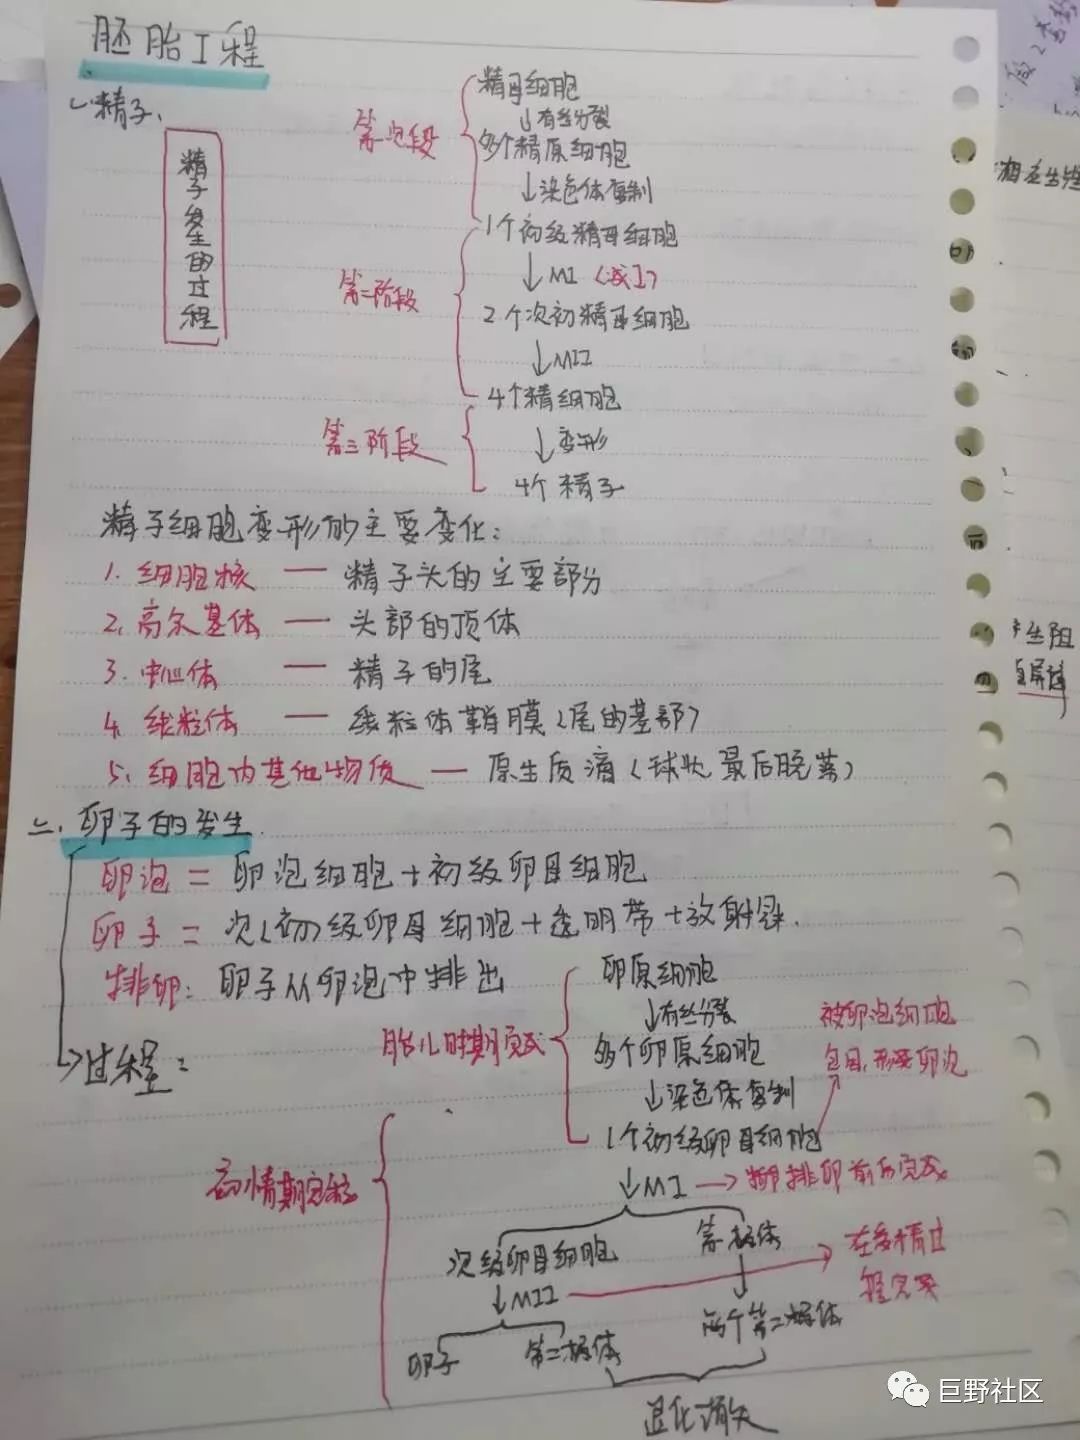 胚胎工程
一、精子、
精子发生的过程
第一阶段
精母细胞
↓有丝分裂
多个精原细胞
↓染色体复制
1个初级精母细胞
第二阶段
↓MI（减I）
2个次初精母细胞
↓MII
4个精细胞
第三阶段
↓变形
4个精子
精子细胞变形的主要变化：
1. 细胞核 — 精子头的主要部分
2. 高尔基体 — 头部的顶体
3. 中心体 — 精子的尾
4. 线粒体 — 线粒体鞘膜（尾的基部）
5. 细胞内其他物质 — 原生质滴（球状 最后脱落）
二、卵子的发生
卵泡 = 卵泡细胞+初级卵母细胞
卵子 = 次（初）级卵母细胞+透明带+放射冠.
排卵：卵子从卵泡中排出
过程：
胎儿时期完成
卵原细胞
↓有丝分裂
多个卵原细胞
↓染色体复制
1个初级卵母细胞
被卵泡细胞
包围,形成卵泡
↓MI → 排卵前后完成
次级卵母细胞 第一极体
↓MII → 在受精过
程完成
卵子 第二极体 两个第二极体
退化消失
相
生阻
巨野社区